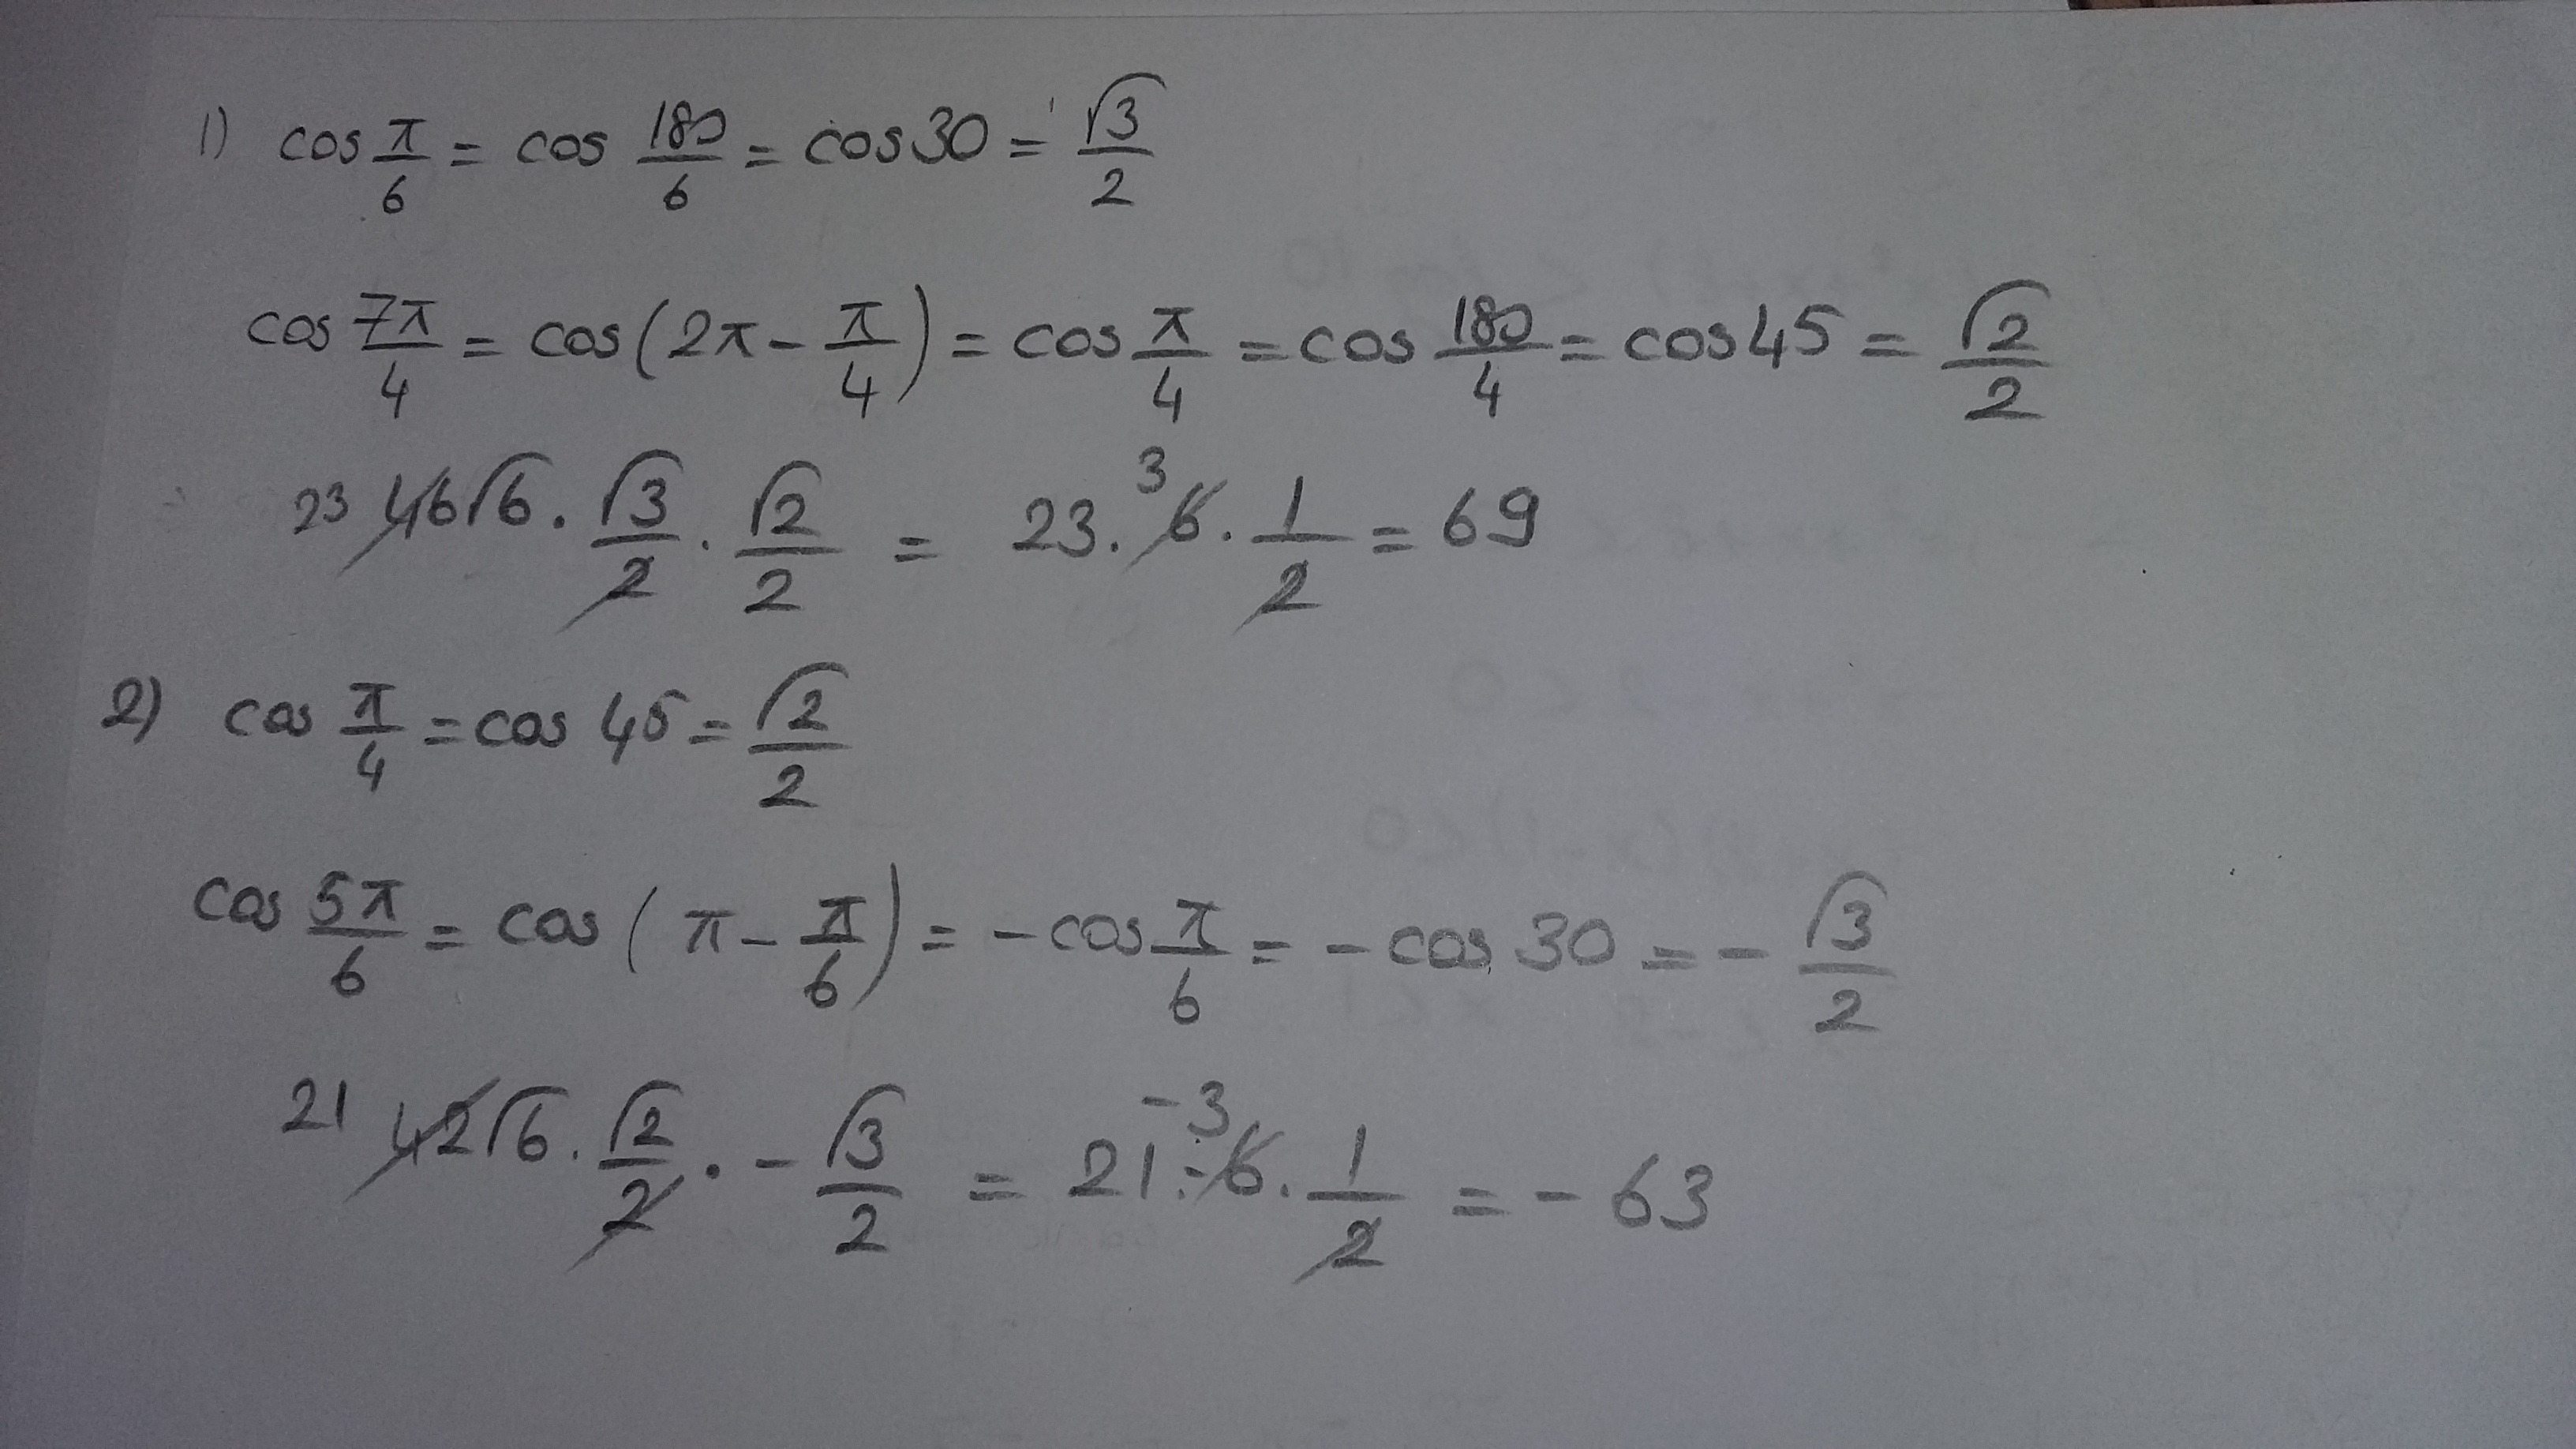 1) cos π/6 = cos 180/6 = cos 30 = √3/2
cos 7π/4 = cos(2π - π/4) = cos π/4 = cos 180/4 = cos 45 = √2/2
23 46√6 . √3/2 . √2/2 = 23 . 3 6 . 1/2 = 69
2) cos π/4 = cos 45 = √2/2
cos 5π/6 = cos(π - π/6) = -cos π/6 = -cos 30 = -√3/2
21 42√6 . √2/2 . -√3/2 = 21 . -3 -6 . 1/2 = -63